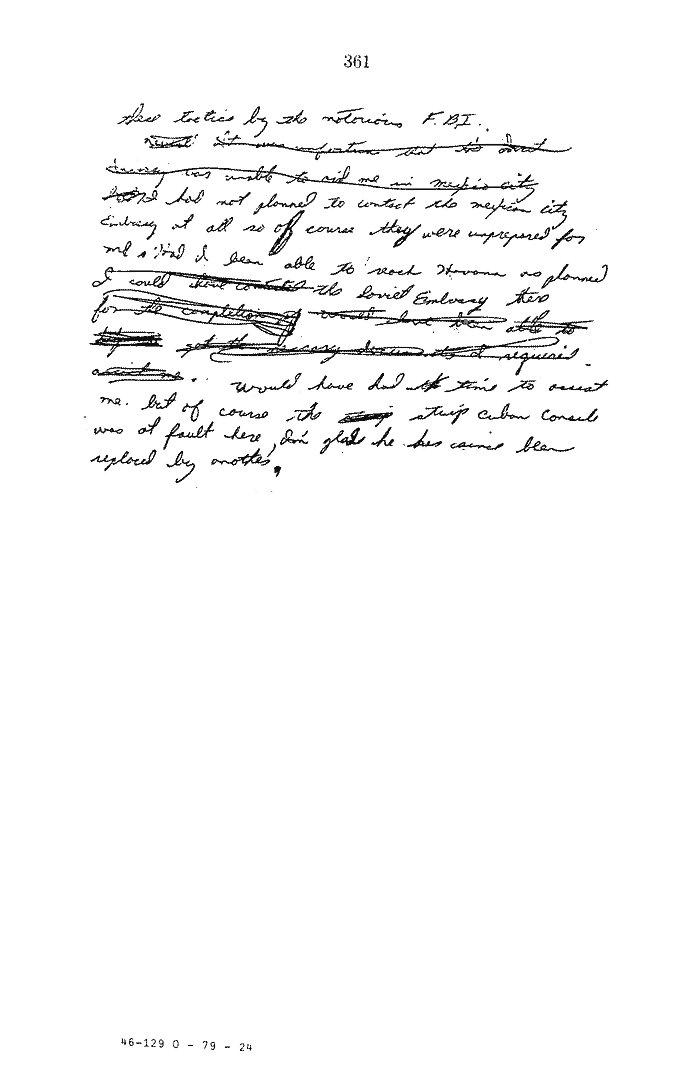 361
thew tactics by the notorious F.B.I.
It was unfortion that the Soviet
was unable to aid me in mexico city
I had not planned to contact the mexican city
Embassy at all so of course they were unprepared for
me. Had I been able to reach Havana as planned
I could have contacted the Soviet Embassy there
for the completion of would have been able to
get the documents I required
assist me. Would have had the time to assist
me. but of course the stuip Cuban Consule
was at fault here, I'm glad he has since been
replaced by another.
46-129 O - 79 - 24